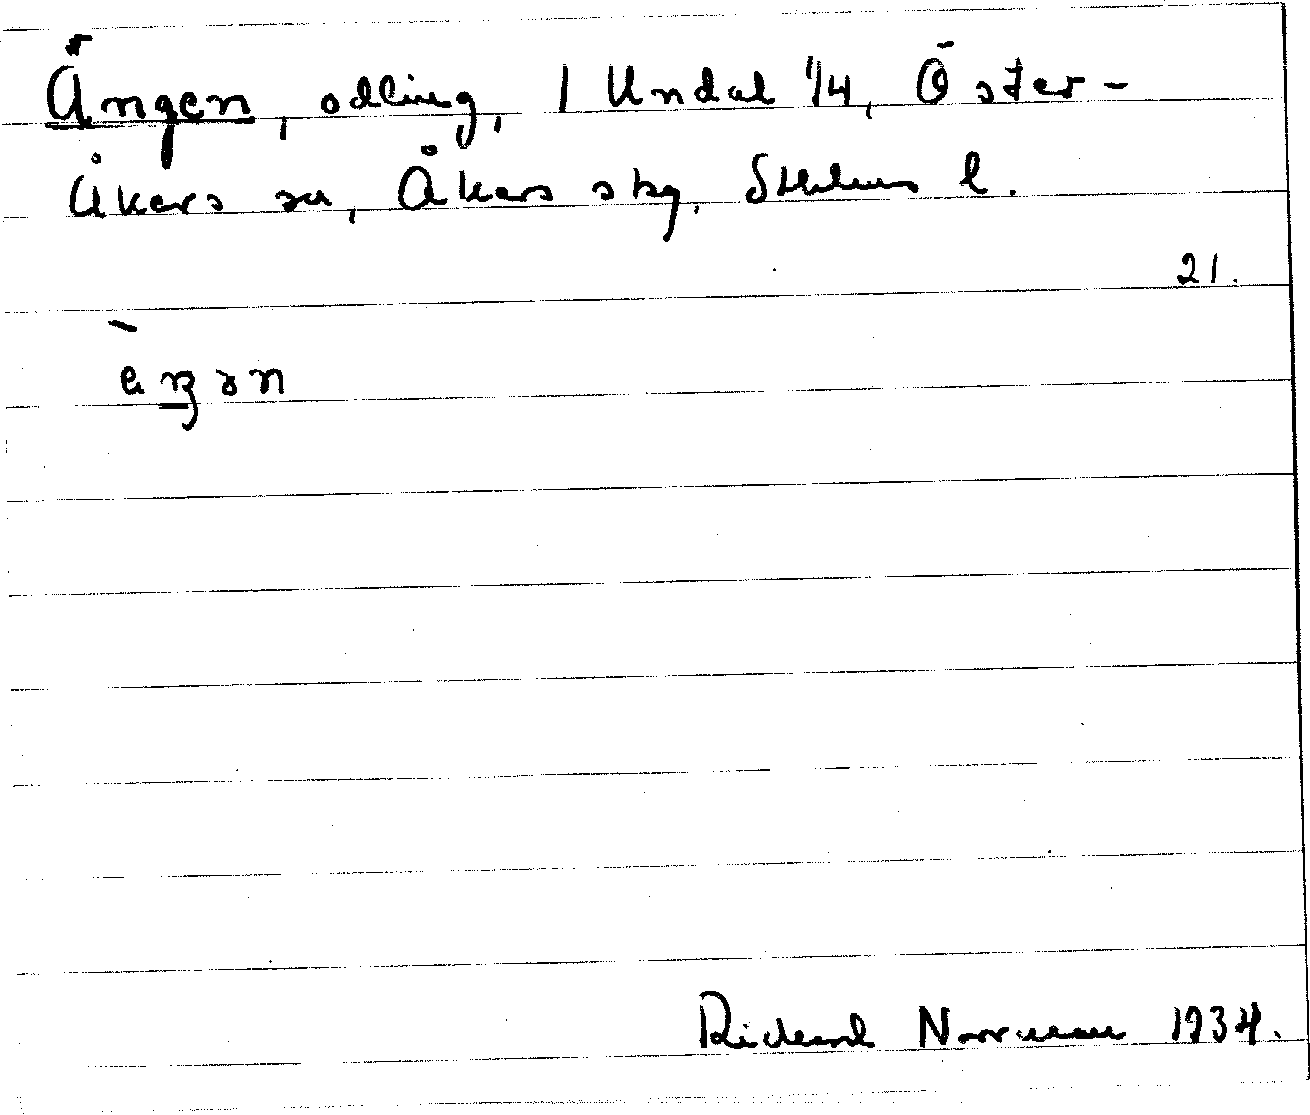 Ängen, odling, 1 Undal 1/4, Öster-
åkers sn, Åkers skg, Sthlms l.
21.
Richard Norrman 1934.